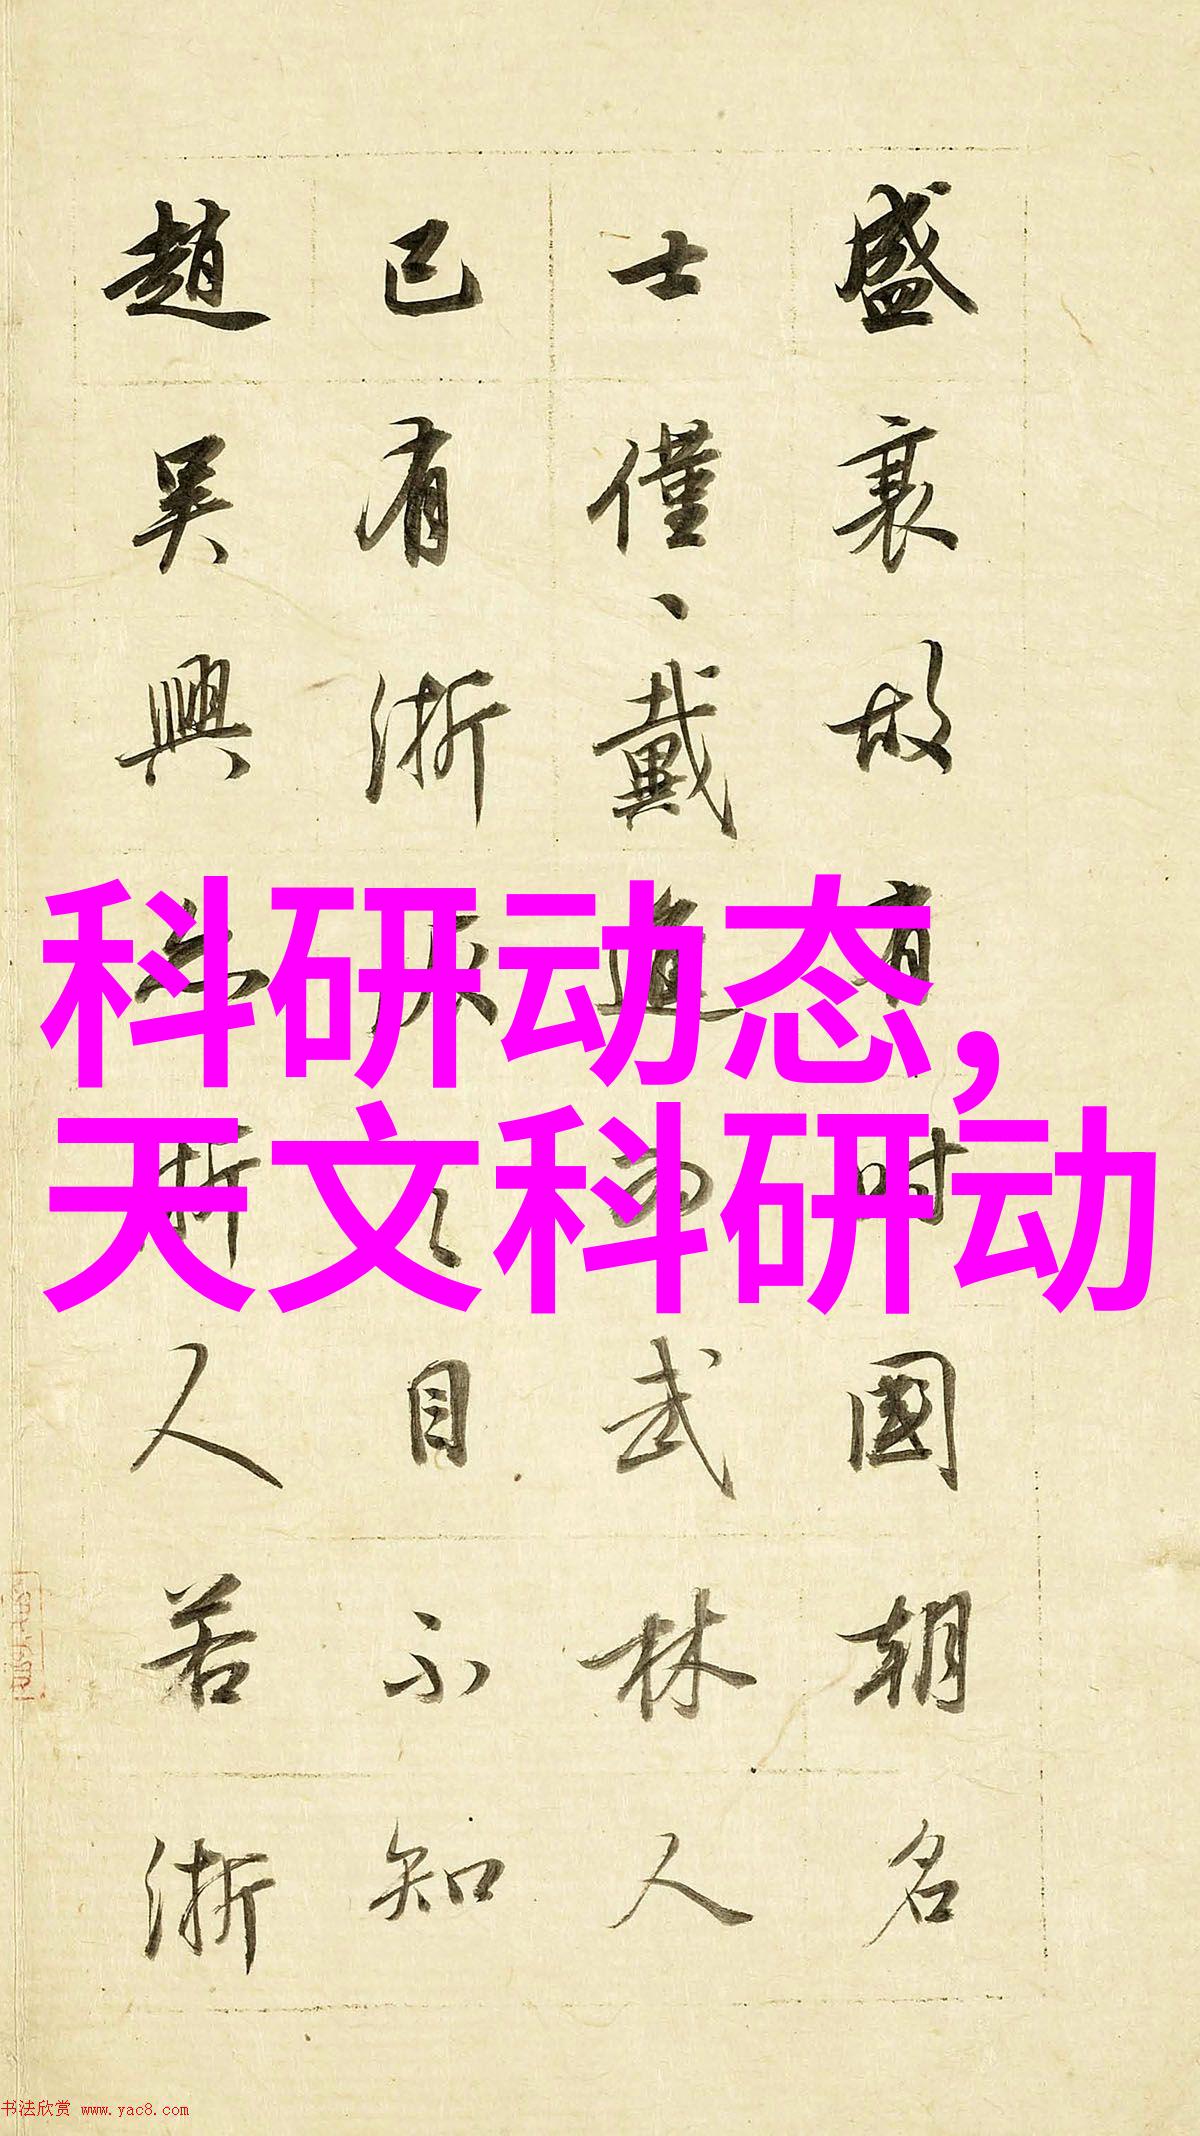 盛衰故有時國朝名
士僅、戴進為武林人
已有浙派之目不知
趙吳興亦浙人若浙
科研动态,
天文科研动
书法欣赏 www.yac8.com